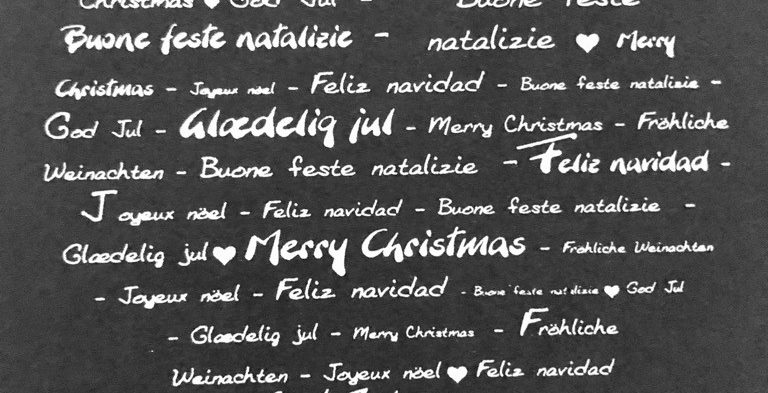 Christmas ♥ God Jul - Buone feste
Buone feste natalizie - natalizie ♥ Merry
Christmas - Joyeux nöel - Feliz navidad - Buone feste natalizie -
God Jul - Glædelig jul - Merry Christmas - Fröhliche
Weinachten - Buone feste natalizie - Feliz navidad -
Joyeux nöel - Feliz navidad - Buone feste natalizie -
Glædelig jul ♥ Merry Christmas - Fröhliche Weinachten
- Joyeux nöel - Feliz navidad - Buone feste natalizie ♥ God Jul
- Glædelig jul - Merry Christmas - Fröhliche
Weinachten - Joyeux nöel ♥ Feliz navidad